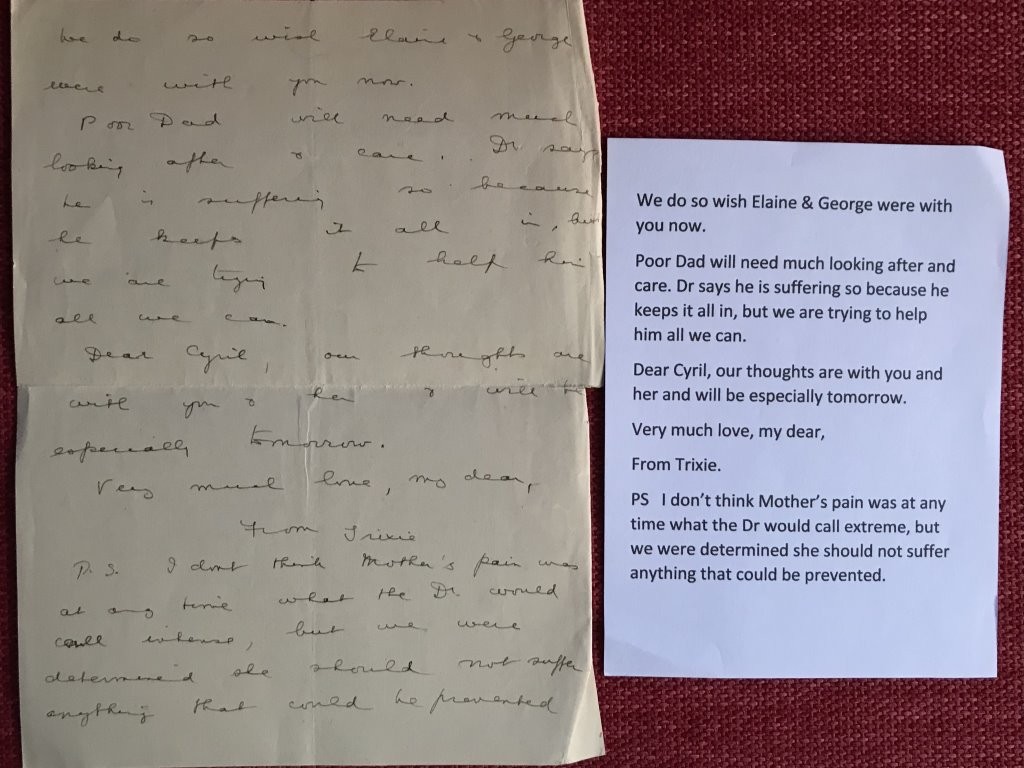 We do so wish Elaine & George
were with you now.
Poor Dad will need much
looking after & care. Dr says
he is suffering so because
he keeps it all in, but
we are trying to help him
all we can.
Dear Cyril, our thoughts are
with you & her & will be
especially tomorrow.
Very much love, my dear,
From Trixie
P.S. I dont think Mother's pain was
at any time what the Dr would
call intense, but we were
determined she should not suffer
anything that could be prevented
We do so wish Elaine & George were with
you now.
Poor Dad will need much looking after and
care. Dr says he is suffering so because he
keeps it all in, but we are trying to help
him all we can.
Dear Cyril, our thoughts are with you and
her and will be especially tomorrow.
Very much love, my dear,
From Trixie.
PS I don't think Mother's pain was at any
time what the Dr would call extreme, but
we were determined she should not suffer
anything that could be prevented.